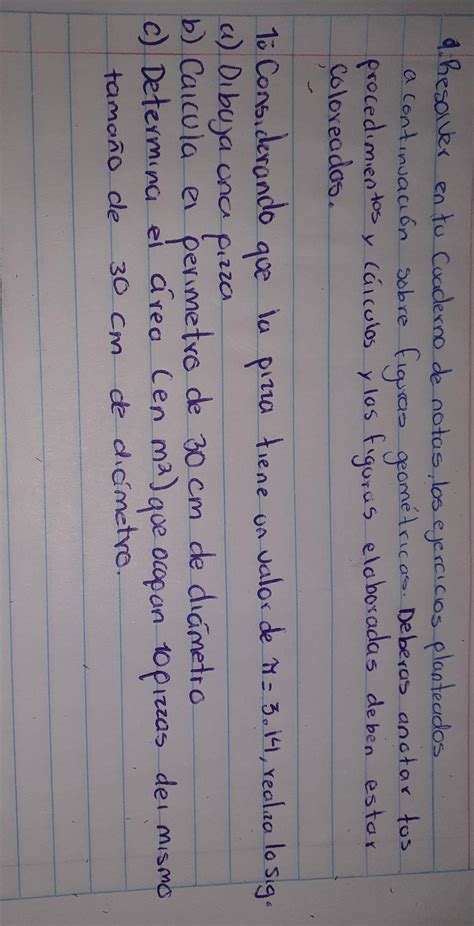 1. Resolver en tu Cuaderno de notas, los ejercicios planteados
a continuación sobre figuras geométricas. Deberas anotar tus
procedimientos y cálculos y las figuras elaboradas deben estar
coloreadas.
1: Considerando que la pizza tiene un valor de π = 3.14, realiza lo sig.
a) Dibuja una pizza
b) Calcula el perimetro de 30 cm de diámetro
c) Determina el área (en m²) que ocupan 10 pizzas del mismo
tamaño de 30 cm de diámetro.